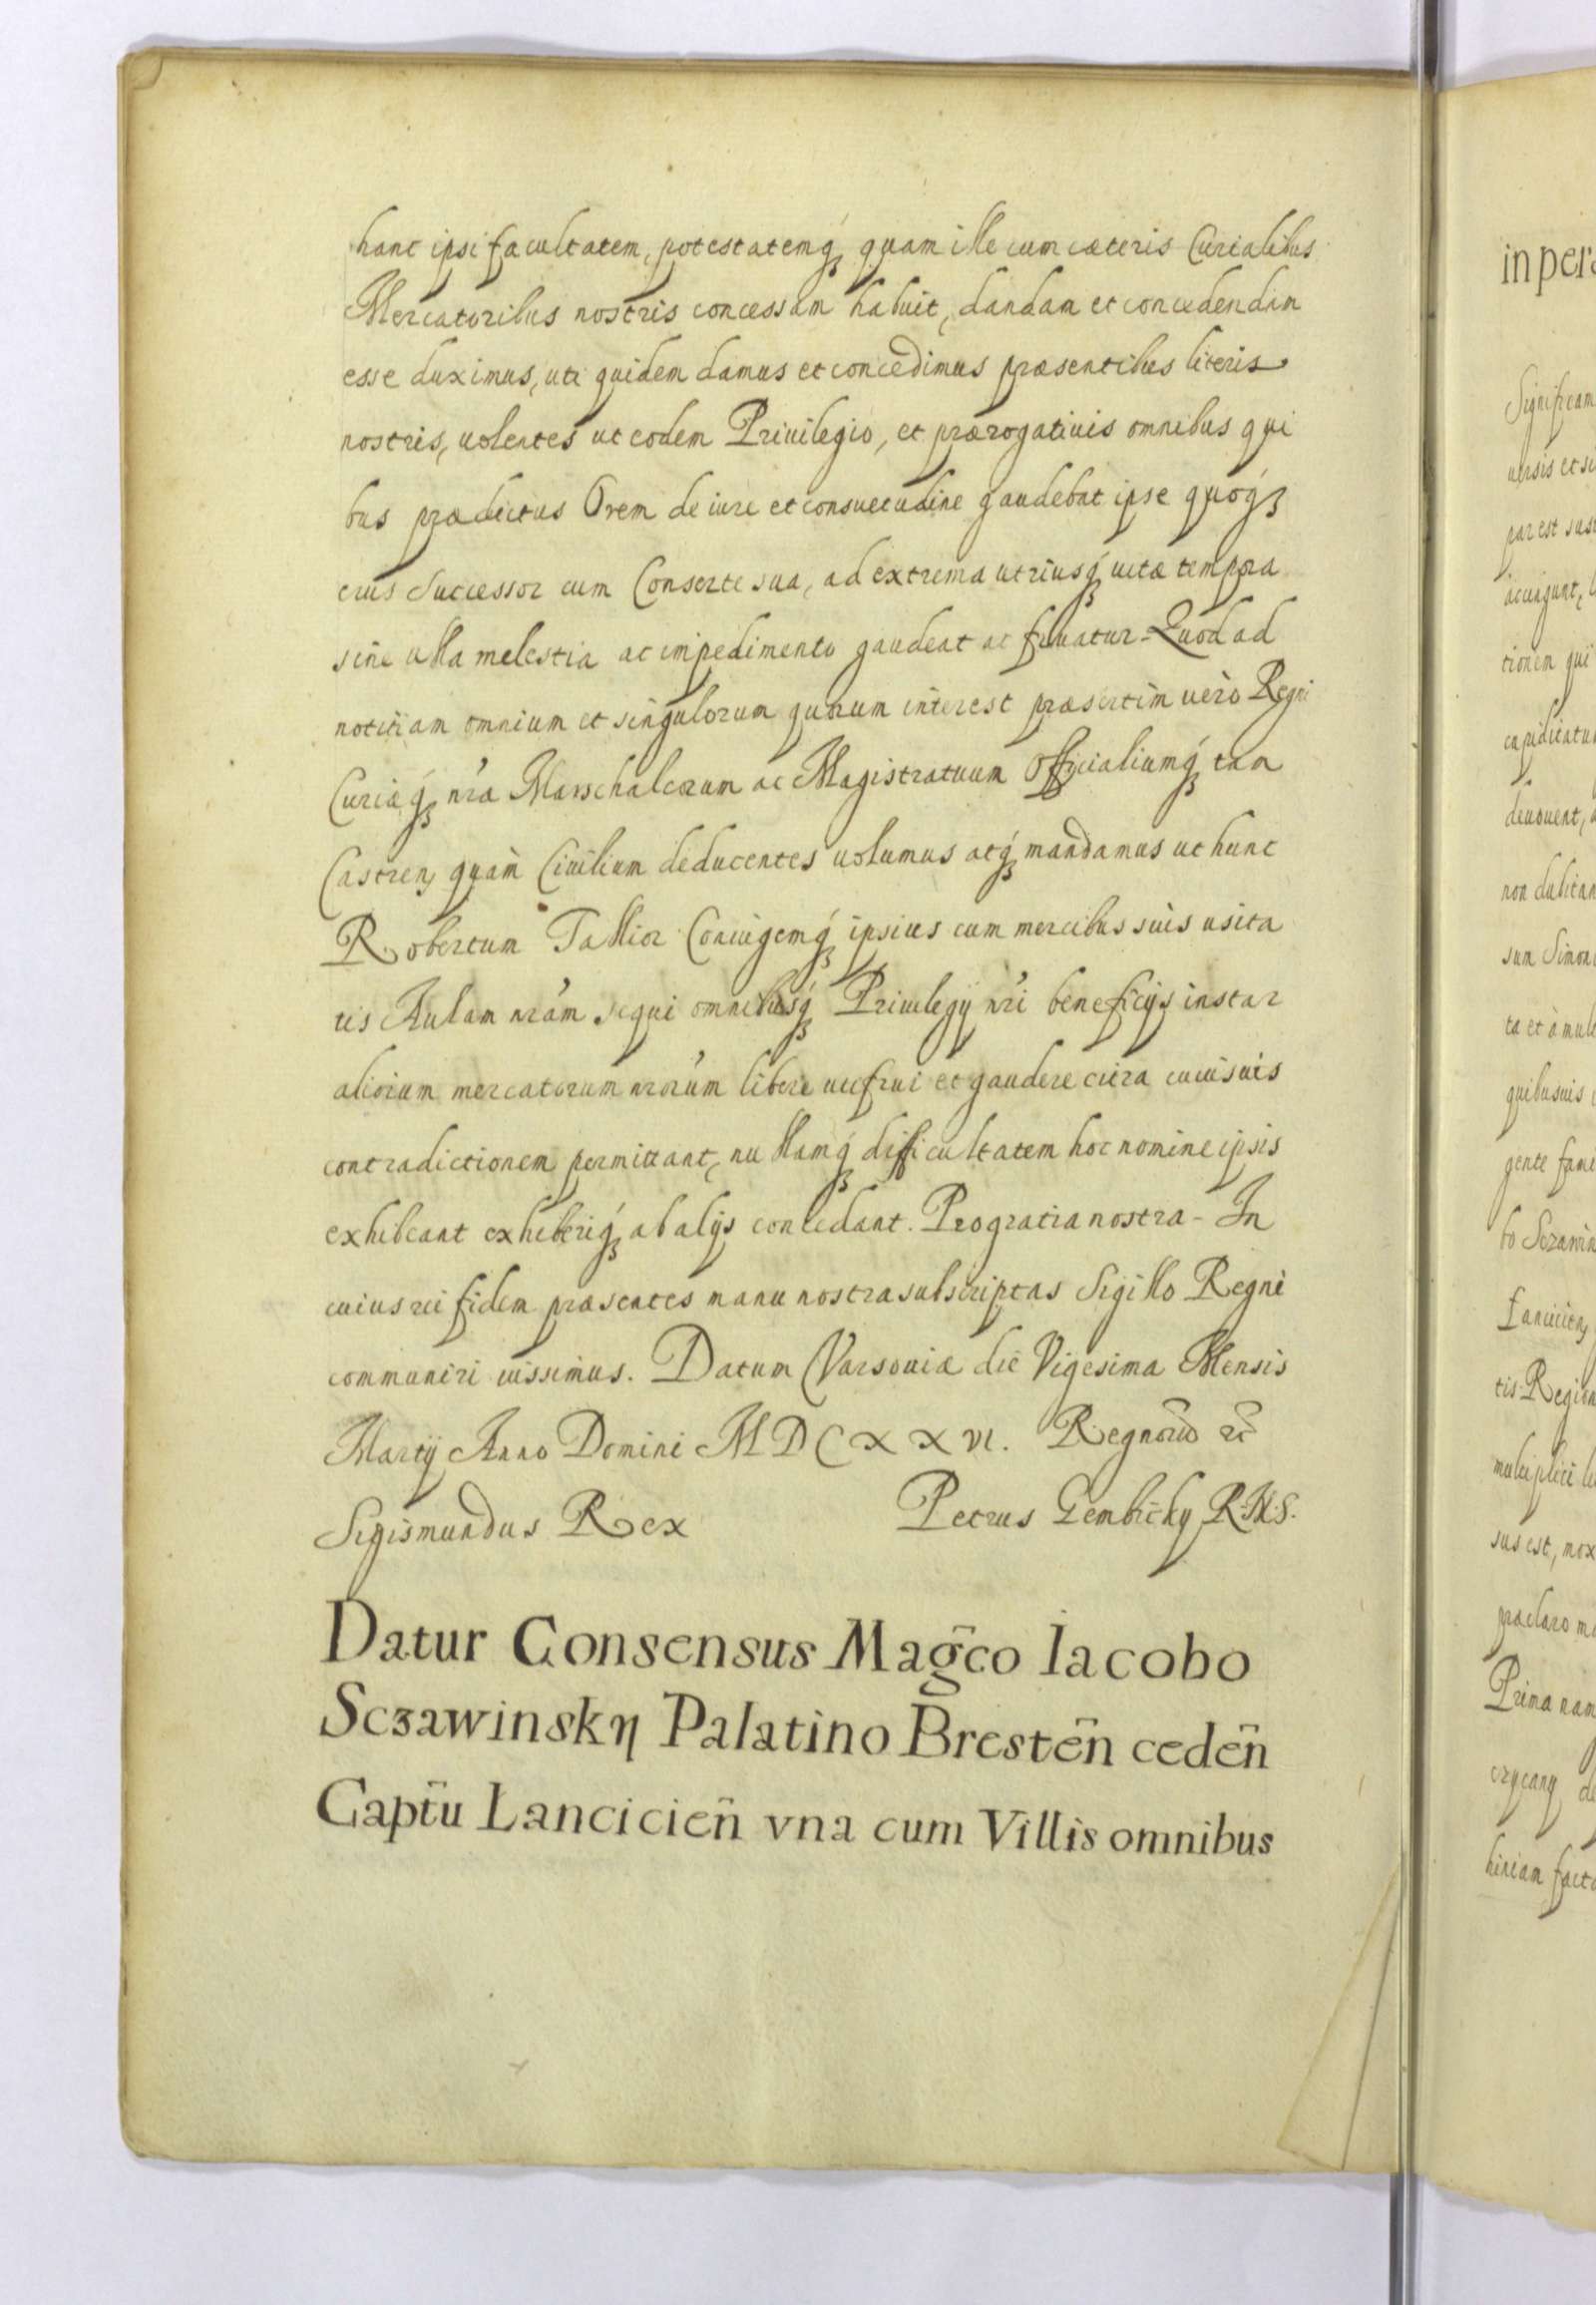 hanc ipsi facultatem, potestatemq́ꝫ quam ille cum cæteris Curialibus
Mercatoribus nostris concessam habuit, dandam et concedendam
esse duximus, uti quidem damus et concedimus præsentibus literis
nostris, uolentes ut eodem Priuilegio, et prærogatiuis omnibus qui
bus prædictus Orem de iure et consuetudine gaudebat ipse quoq́ꝫ
eius Successor cum Consorte sua, ad extrema utriusq́ꝫ uitæ tempora
sine ulla molestia ac impedimento gaudeat ac fruatur - Quod ad
notitiam omnium et singulorum quorum interest præsertim uero Regni
Curiæq́ꝫ nræ Marschalcorum ac Magistratuum Officialiumq́ꝫ tam
Castren, quàm Ciuilium deducentes uolumus atq́ꝫ mandamus ut hunc
Robertum Tallior Coniugemq́ꝫ ipsius cum mercibus suis usita
tis Aulam nrám sequi omnibusq́ꝫ Priuilegij nri beneficijs instar
aliorum mercatorum nrorúm libere utifrui et gaudere citra cuiusuis
contradictionem permittant, nullamq́ꝫ difficultatem hoc nomine ipsis
exhibeant exhiberiq́ꝫ ab alijs concedant. Pro gratia nostra - In
cuius rei fidem præsentes manu nostra subscriptas Sigillo Regni
communiri iussimus. Datum Varsouiæ die Vigesima Mensis
Martij Anno Domini M D C X X VI. Regnorũ
Sigismundus Rex Petrus Gembicky R.N.S.
Datur Consensus Mag̃co Iacobo
Sczawinsky Palatino Bresteñ cedeñ
Captũ Lancicieñ vna cum Villis omnibus
in per
Significam
uersis et si
par est
tionem qui
deuouent,
non dubitan
sum Simon
ta et à mul
quibusuis
gente
tis Region
sus est, mox
præclaro
Prima nam